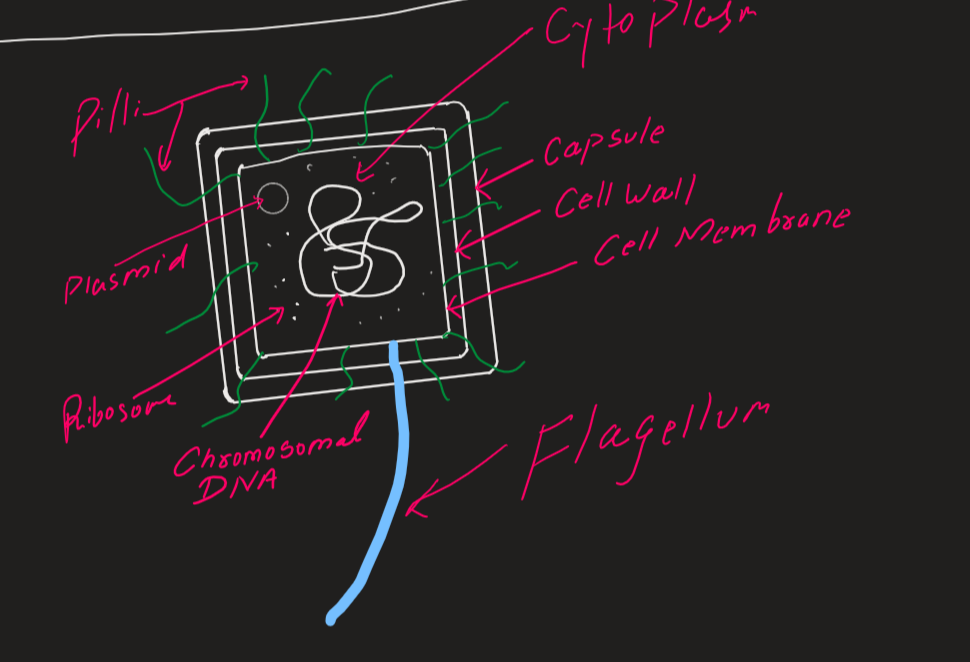 Cytoplasm
Pilli
Capsule
Cell Wall
Cell Membrane
Plasmid
Ribosome
Chromosomal
DNA
Flagellum